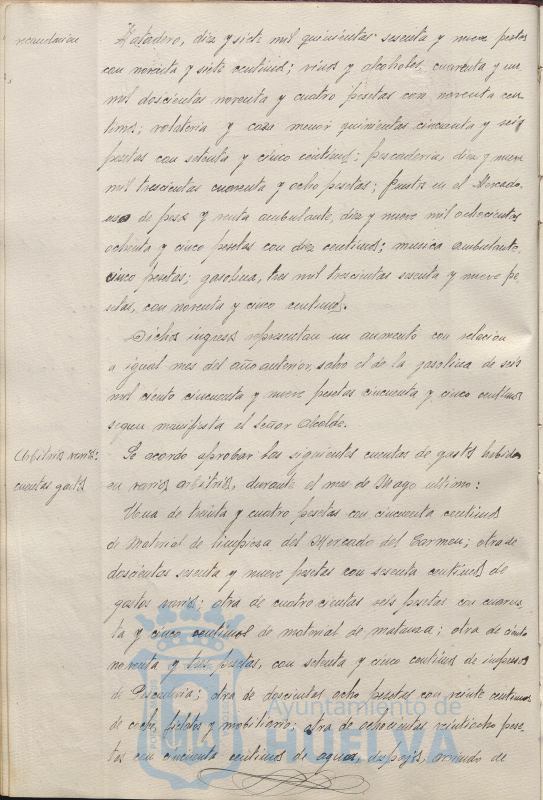 recaudación
Matadero, diez y siete mil quinientas sesenta y nueve pesetas
con noventa y siete centimos; vinos y alcoholes, cuarenta y un
mil doscientas noventa y cuatro pesetas con noventa cen-
timos; volateria y caza menor quinientas cincuenta y seis
pesetas con setenta y cinco centimos; pescaderia, diez y nueve
mil trescientas cuarenta y ocho pesetas; puestos en el Mercado,
uso de pesas y venta ambulante, diez y nueve mil ochocientas
ochenta y cinco pesetas con diez centimos; musica ambulante,
cinco pesetas; gasolina, tres mil trescientas sesenta y nueve pe
setas, con noventa y cinco centimos.
Dichos ingresos representan un aumento con relacion
a igual mes del año anterior, salvo el de la gasolina de seis
mil ciento cincuenta y nueve pesetas cincuenta y cinco centimos
segun manifiesta el señor Alcalde.
Arbitrios varios:
cuentas gastos
Se acordo aprobar las siguientes cuentas de gastos habidos
en varios arbitrios, durante el mes de Mayo ultimo:
Una de treinta y cuatro pesetas con cincuenta centimos
de Material de limpieza del Mercado del Carmen; otra de
doscientas sesenta y nueve pesetas con sesenta centimos de
gastos varios; otra de cuatrocientas seis pesetas con cuaren-
ta y cinco centimos de material de matanza; otra de ciento
noventa y tres pesetas, con setenta y cinco centimos de impresos
de Pescaderia; otra de doscientas ocho pesetas con veinte centimos
de coche, fieldes y mobiliario; otra de ochocientas veintiocho pese-
tas con cincuenta centimos de agua, despojos, de
Ayuntamiento de
HUELVA